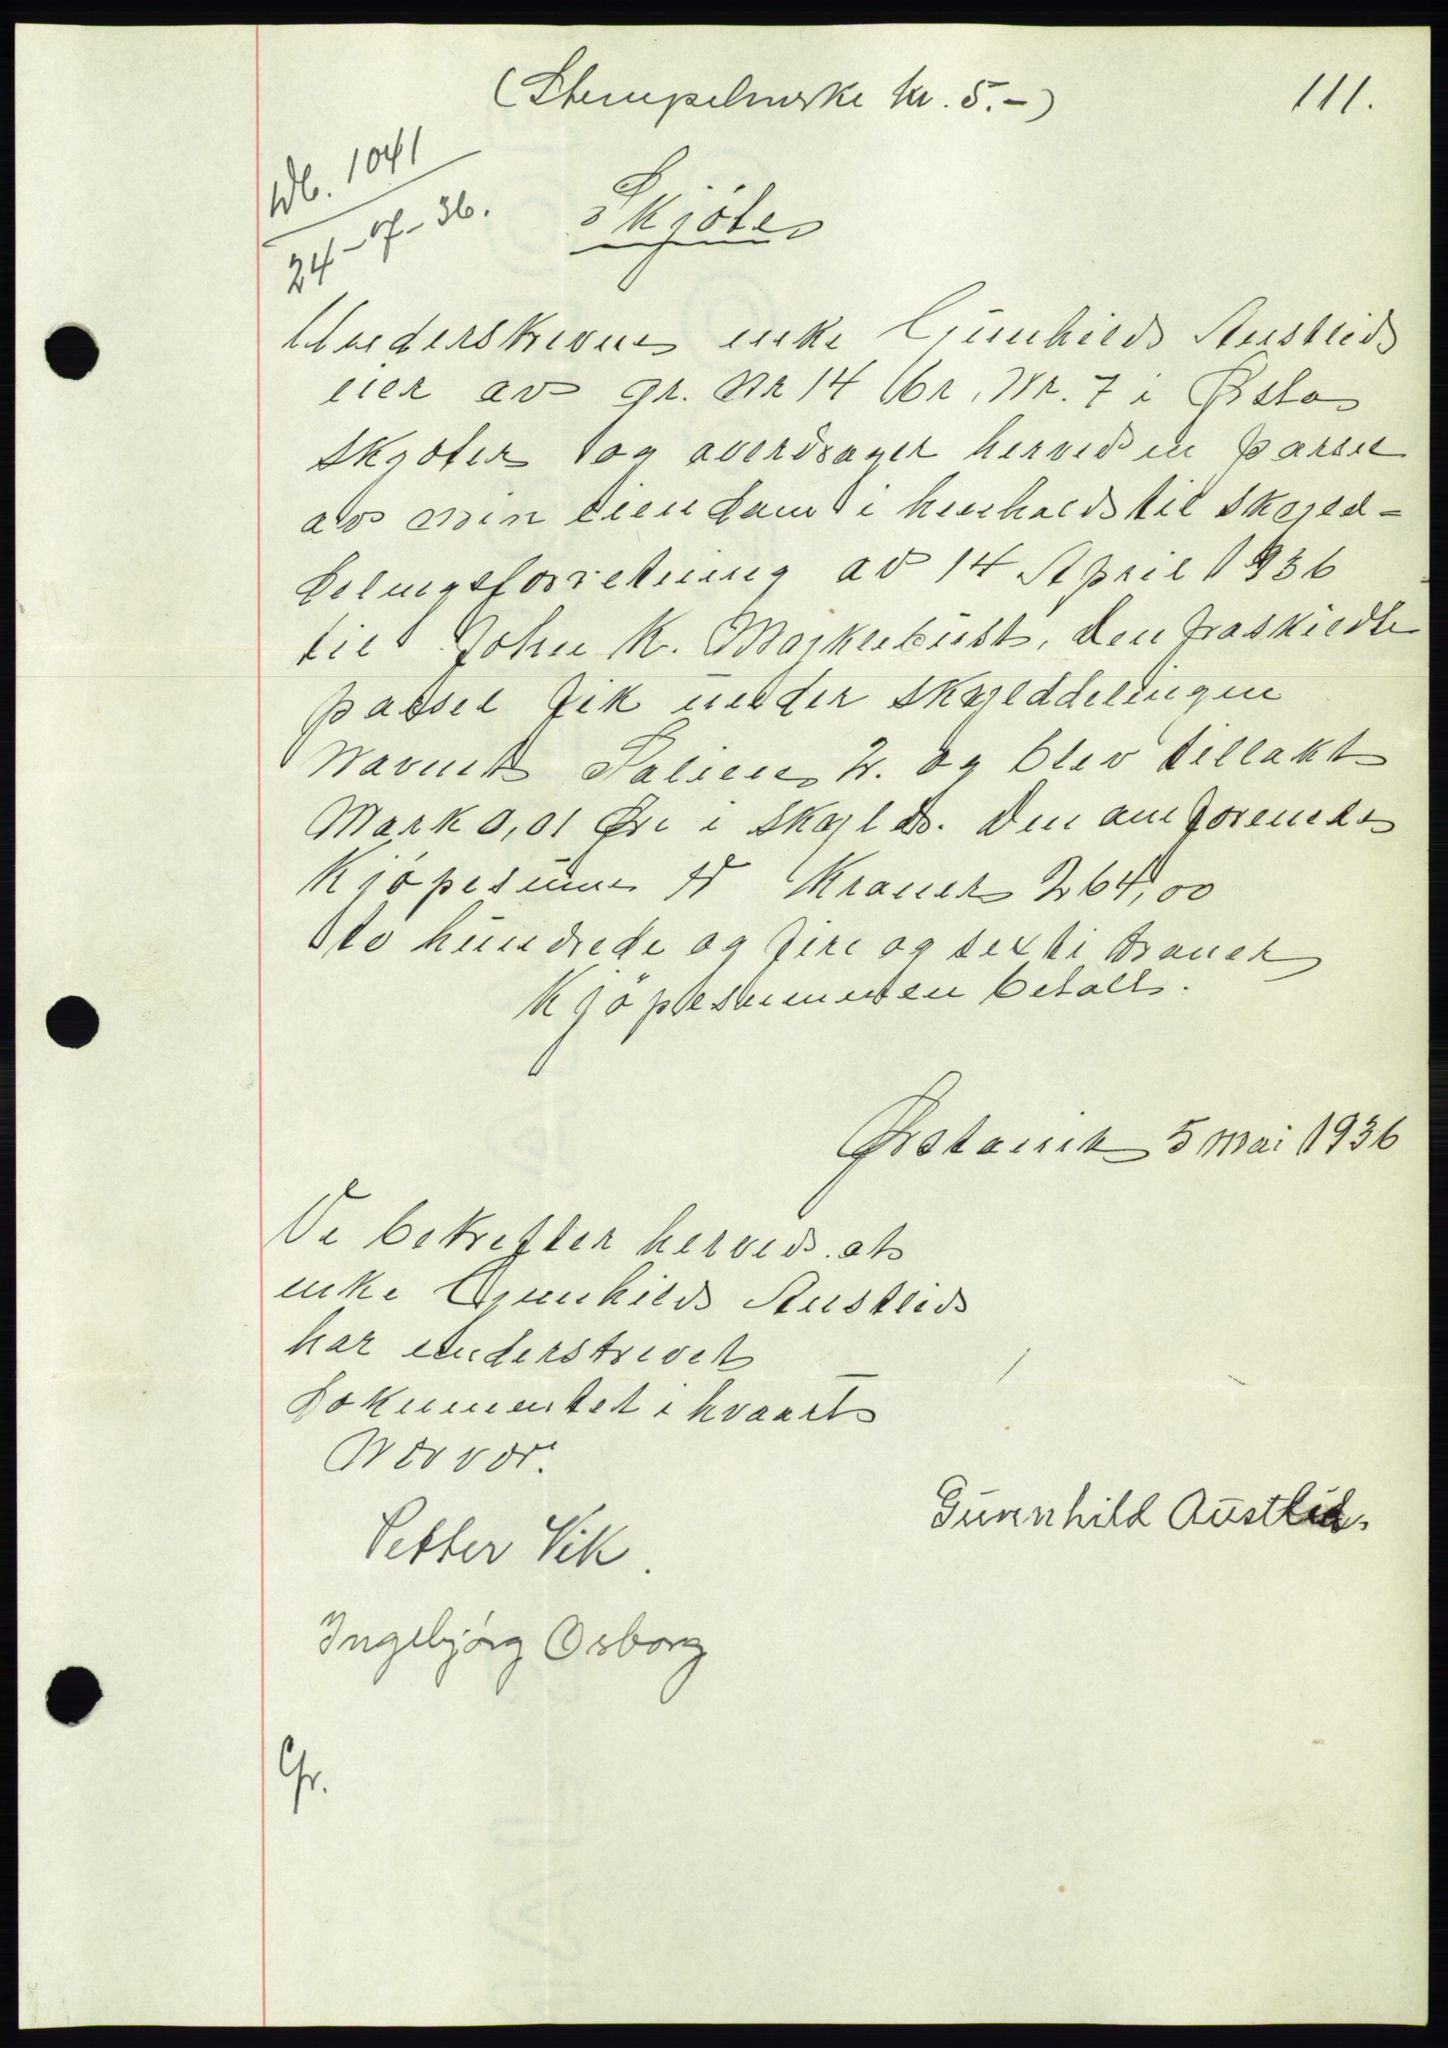 (Stempelmerke kr. 5.-)
111.
Db. 1041
24-07-36.
Skjöte
Underskrevne enke Gunhild Austlid
eier av gr. Nr 14 br. Nr. 7 i Ørsta
skjøter og overdrager herved en parsel
av min eiendom i henhold til skyld-
delingsforretning av 14 April 1936
til John K. Morkebust, den fraskiedte
parsel fik under skylddelingen
Navnet 2. og blev tillakt
Mark 0,01 Øre i skyld. Den omforenede
Kjöpesum Kroner 264,00
to hundrede og fire og sexti kroner
Kjöpesummen betalt.
Ørstavik 5 mai 1936
Ve bekrefter herved at
enke Gunhild Austlid
har understrevet
Dokumentet i kvaart
Nervær.
Gunnhild Austlid.
Petter Vik.
Ingebjörg Osborg
Gr.